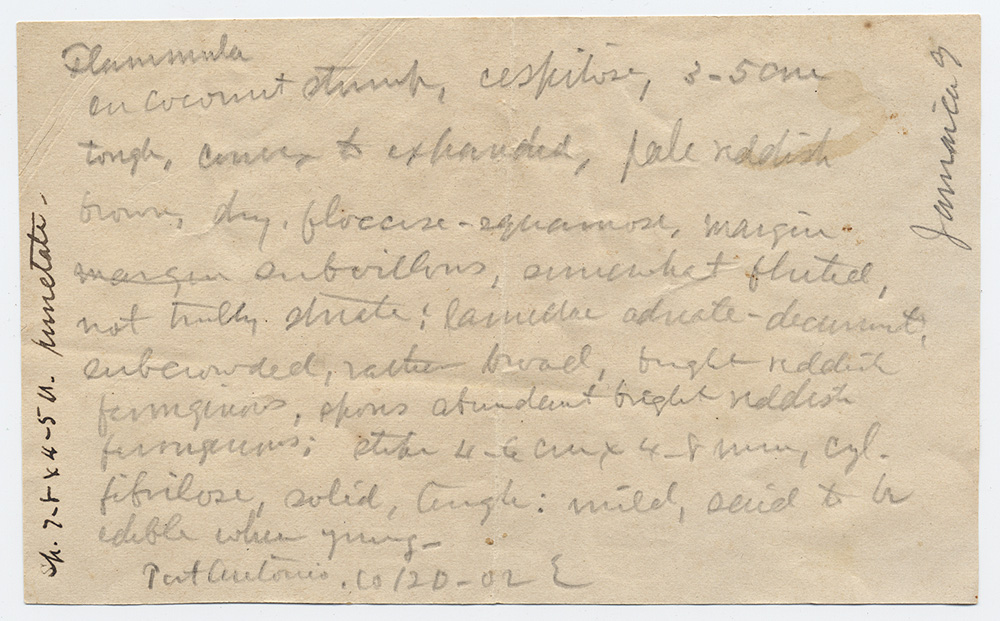 Flammula
on coconut stump, cespitose, 3-5 cm
tough, convex to expanded, pale reddish
brown, dry, floccose-squamose, margin
margin subvillous, somewhat fluted,
not truly striate: lamellae adnate-decurrent,
subcrowded, rather broad, bright reddish
ferruginous, spores abundant bright reddish
ferruginous: stipe 4-6 cm x 4-8 mm, cyl.
fibrilose, solid, tough: mild, said to be
edible when young-
Port Antonio. E
Jamaica 9
sp. 7-8 x 4-5 u. punctate-